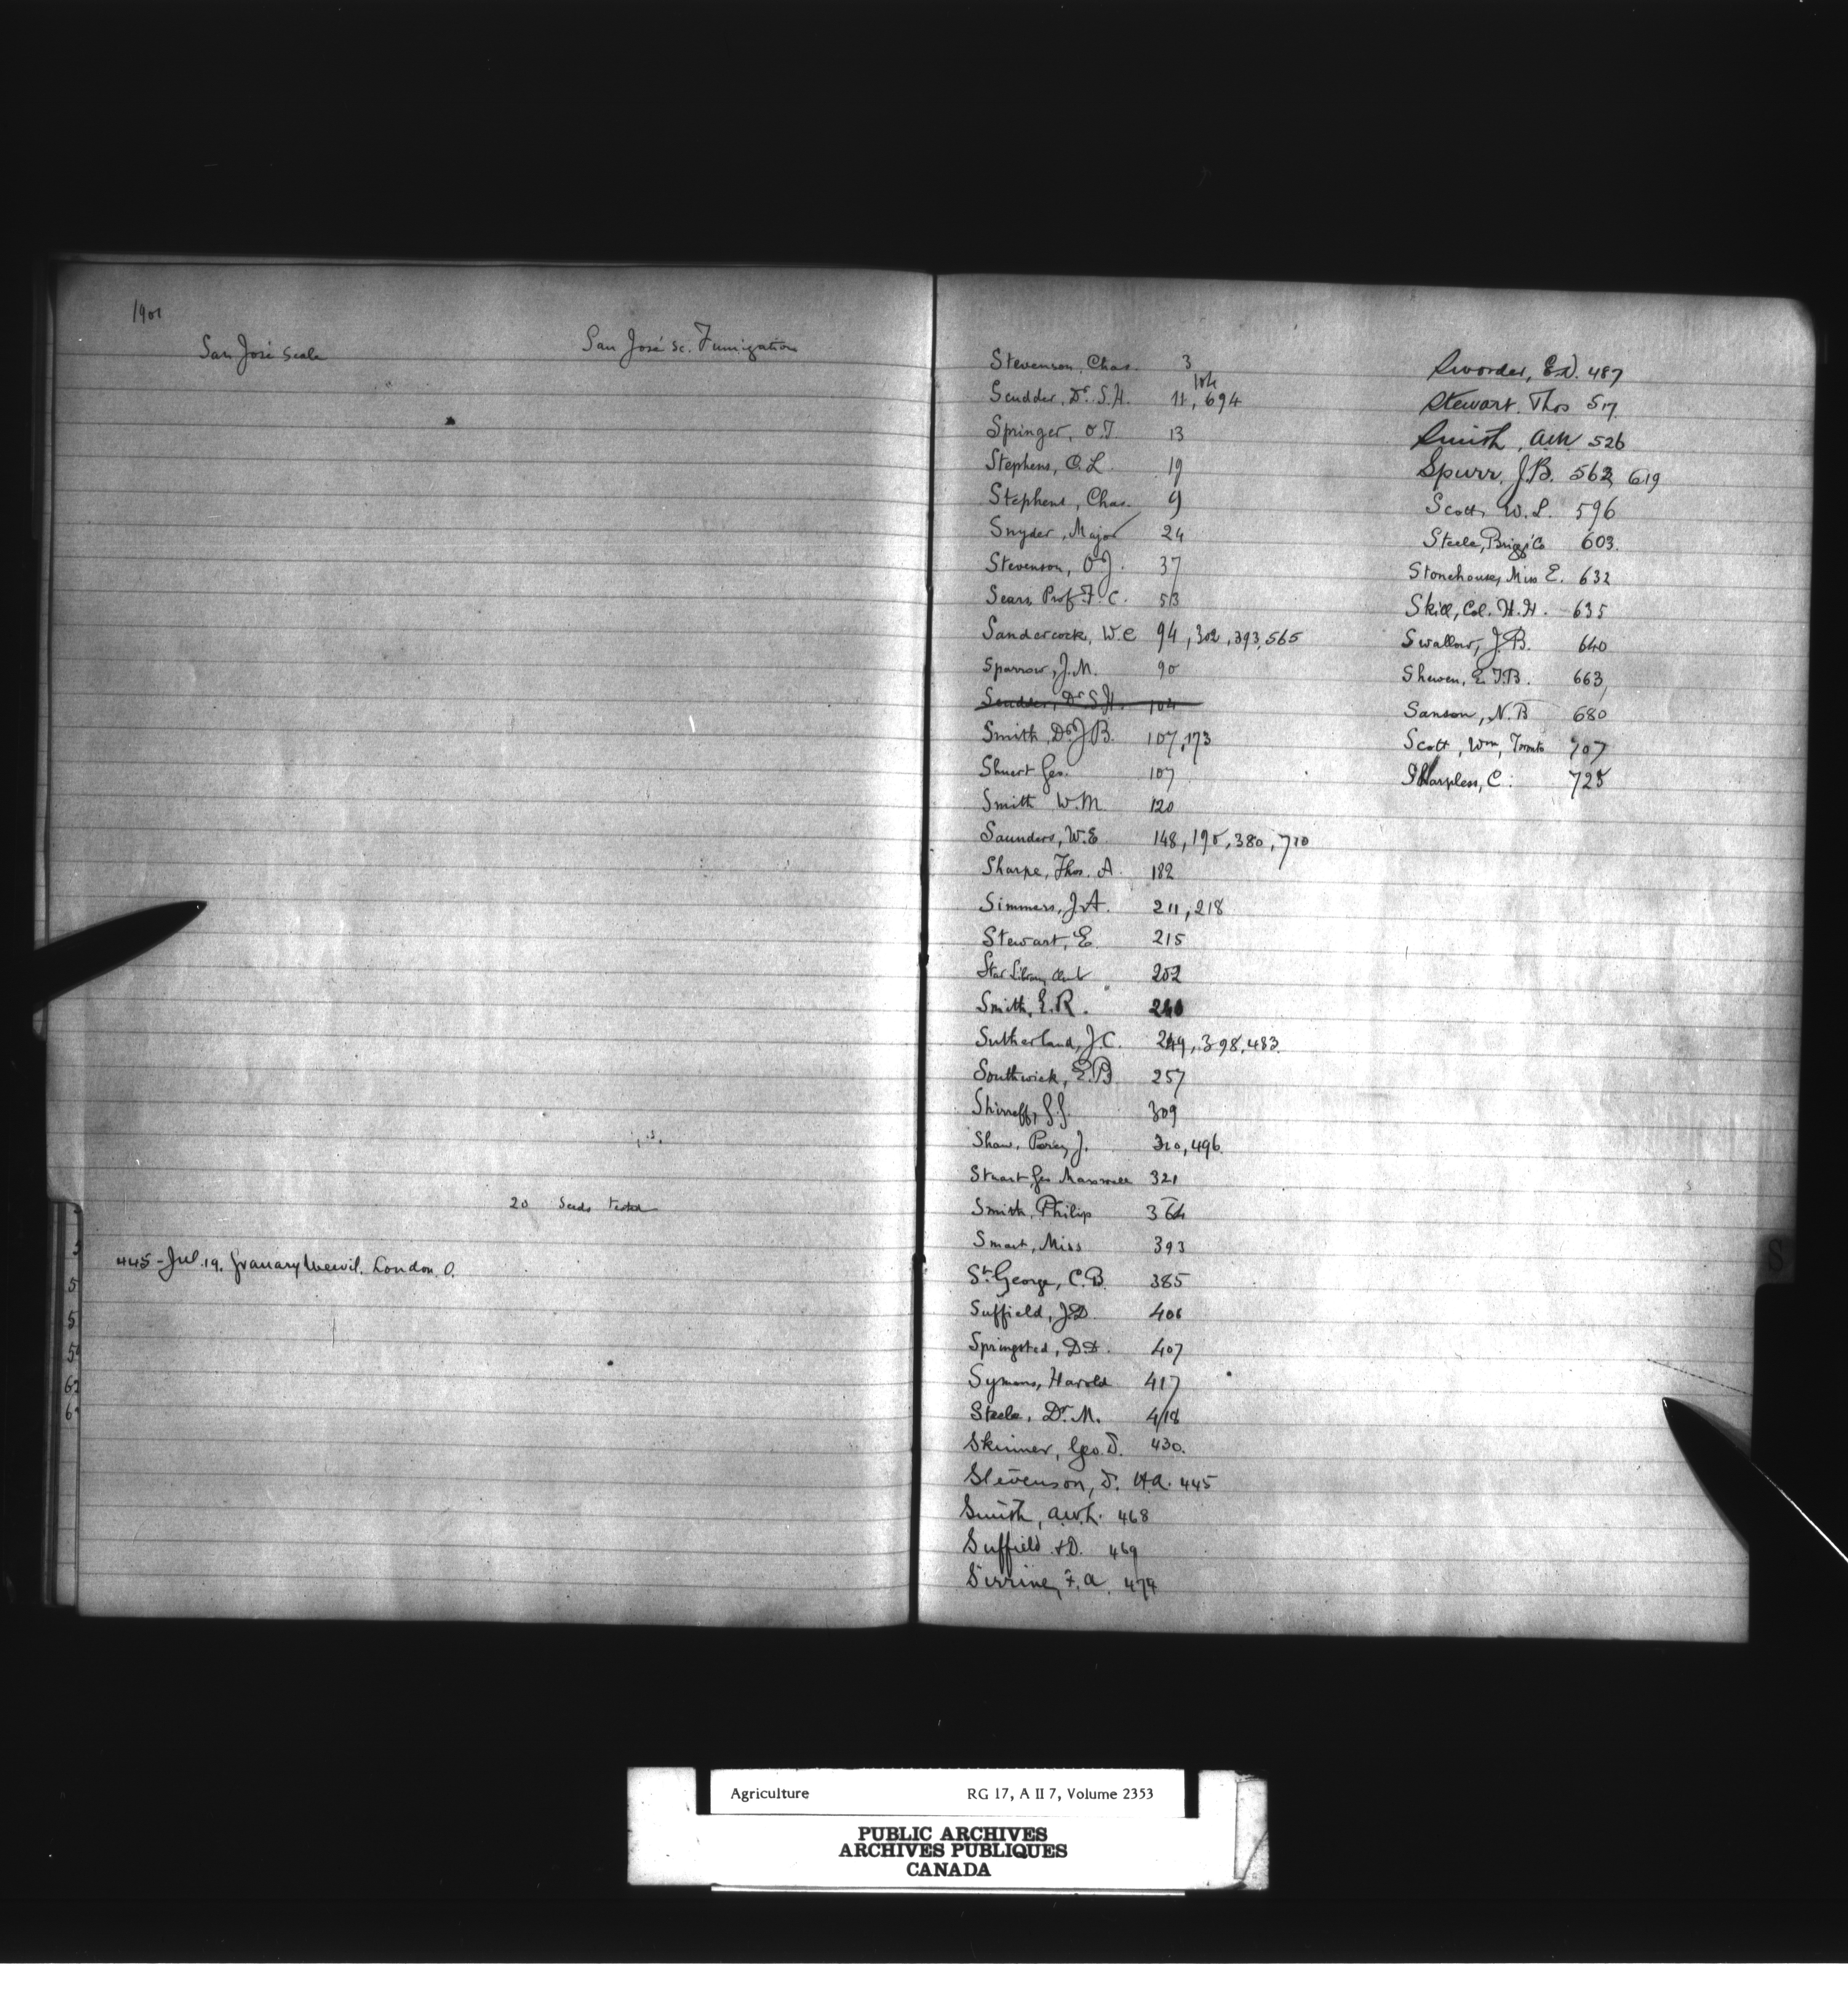 1901
San José Scale
San José Sc. Fumigation
20 Seeds tested
445 - Jul. 19. Granary Weevil. London. O.
Stevenson, Chas. 3
104
Scudder, Dr. S.H. 11, 694
Springer, O.T. 13
Stephens, O.L. 19
Stephens, Chas. 9
Snyder, Major 24
Stevenson, O.J. 37
Sears, Prof. F.C. 53
Sandercock, W.C 94, 302, 393, 565
Sparrow, J.M. 90
Scudder, Dr. S.H. 104
Smith, Dr. J.B. 107, 173
Stuart Geo. 107
Smith W.M. 120
Saunders, W.E. 148, 195, 380, 710
Sharpe, Thos. A. 182
Simmers, J.A. 211, 218
Stewart, E. 215
Star Library Club 202
Smith, E.R. 240
Sutherland, J.C. 249, 398, 483.
Southwick, E.B. 257
Shirreff, 309
Shaw, Percy J. 310, 496.
Stuart, Geo Maxwell 321
Smith, Philip 364
Smart, Miss 393
St. George, C.B. 385
Suffield, J.D. 406
Springsted, D.D. 407
Symons, Harold 417
Steele, Dr. M. 418
Skinner, Geo. D. 430.
Stevenson, D. H.A. 445
Smith, A.W.L. 468
Suffield J.D. 469
Sirrine, F.A. 474
Sworder, E.D. 487
Stewart, Thos 517
Smith, 526
Spurr, J.B. 562, 619
Scott, W.L. 596
Steele, Briggs Co 603.
Stonehouse, Miss E. 632
Skill, Col. H.H. 635
Swallow, J.B. 640
Shewen, E.T.B. 663,
Sanson, N.B 680
Scott, Wm, Toronto 707
Sharpless, C. 725
S
3
5
5
5
62
6
Agriculture RG 17, A II 7, Volume 2353
PUBLIC ARCHIVES
ARCHIVES PUBLIQUES
CANADA